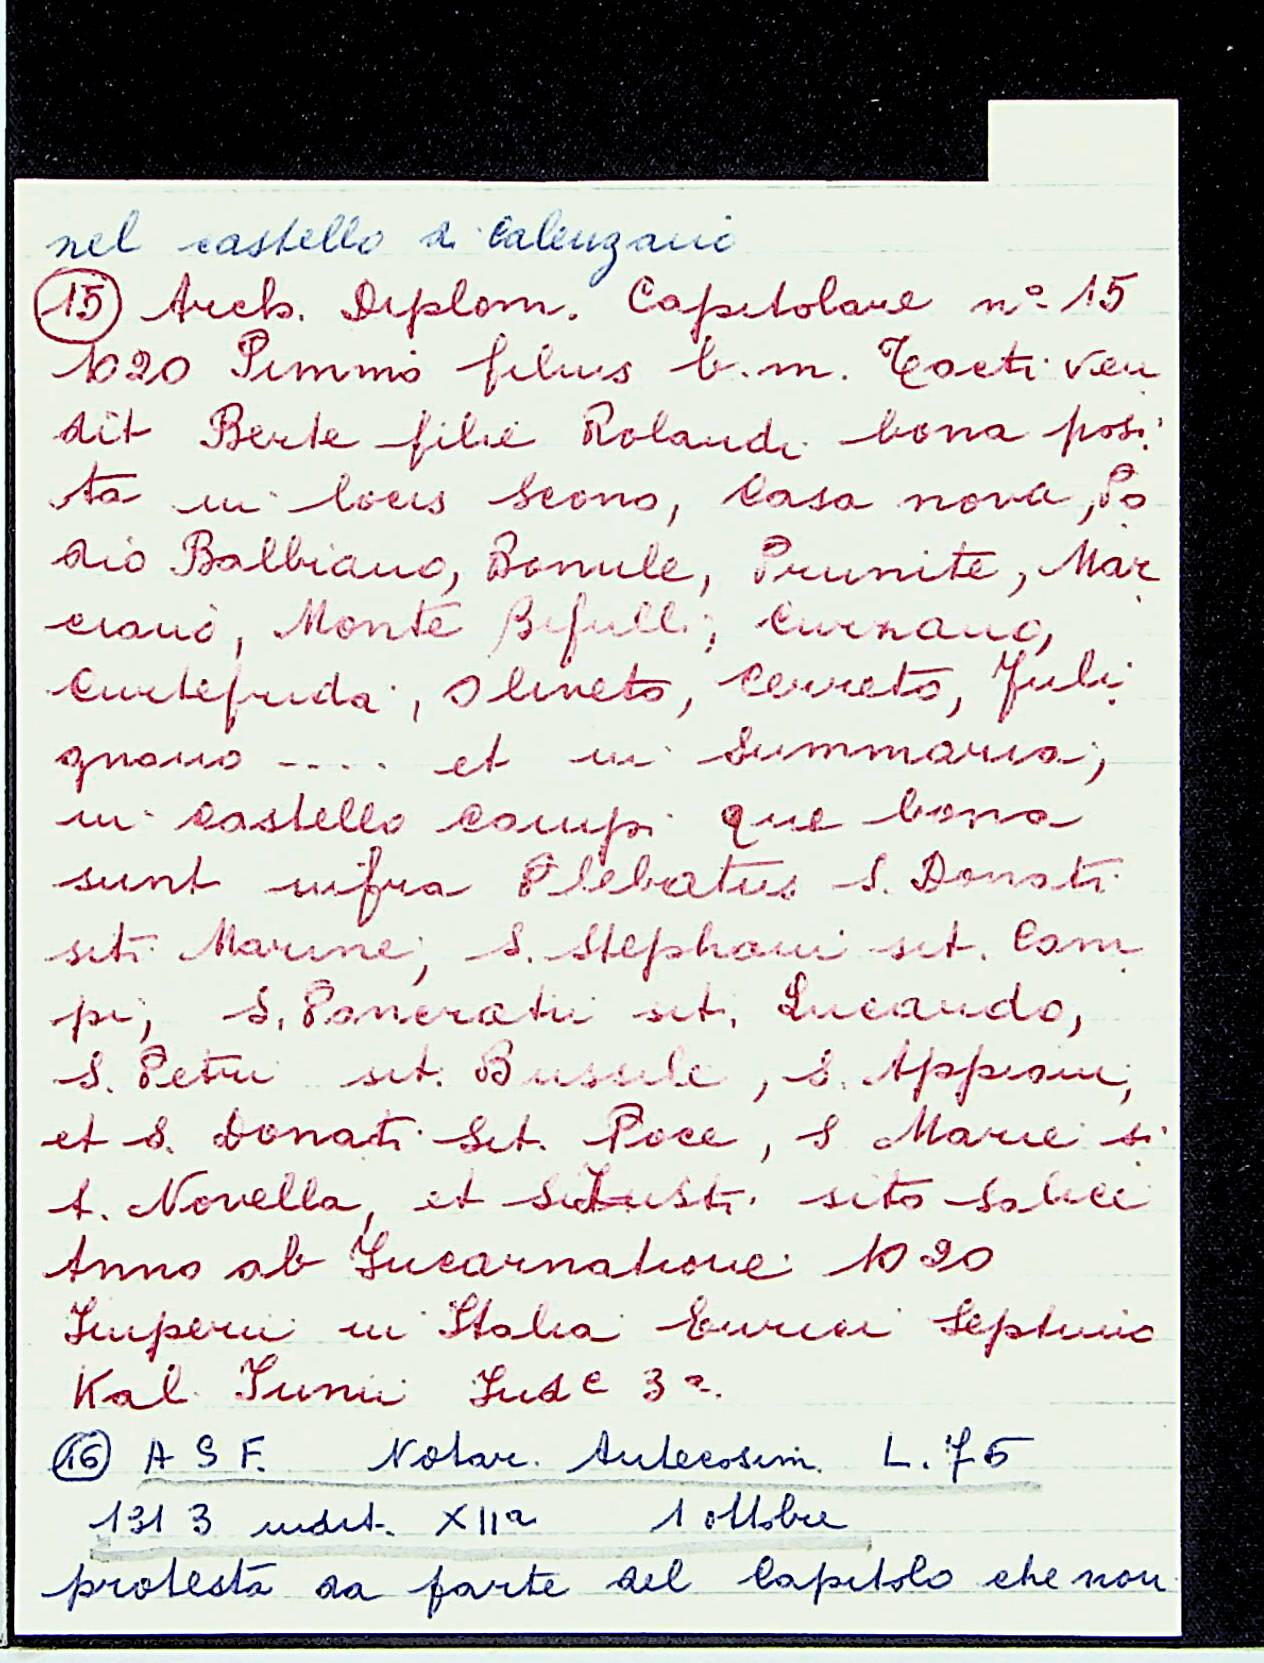 nel castello di Calenzano
15 Arch. Diplom. Capitolare nº 15
1020 Pimmo filius b.m. Tocti ven
dit Berte filie Rolandi bona posi
ta in locis Scono, Casa nova, Po
dio Balbiano, Bonule, Prunite, Mar
ciano, Monte Bifulli; Curnano,
Curtefrida, Oliveto, Cerreto, Juli
gnano .... et in Summaria;
in castello Campi que bona
sunt infra Plebatus S. Donati
siti Marine, S. Stephani sit. Cam
pi, S. Pancratii sit. Lucardo,
S. Petri sit. Bussule, S. Appiani,
et S. Donati Sit. Poce, S Marie si
t. Novella, et S. Justi sito Salici
Anno ab Incarnatione 1020
Imperii in Italia Enrici Septimo
Kal. Junii Indc 3a.
16 A S F. Notar. Antecosim. L. 75
1313 indit. XIIa 1 ottobre
protesta da parte del Capitolo che non